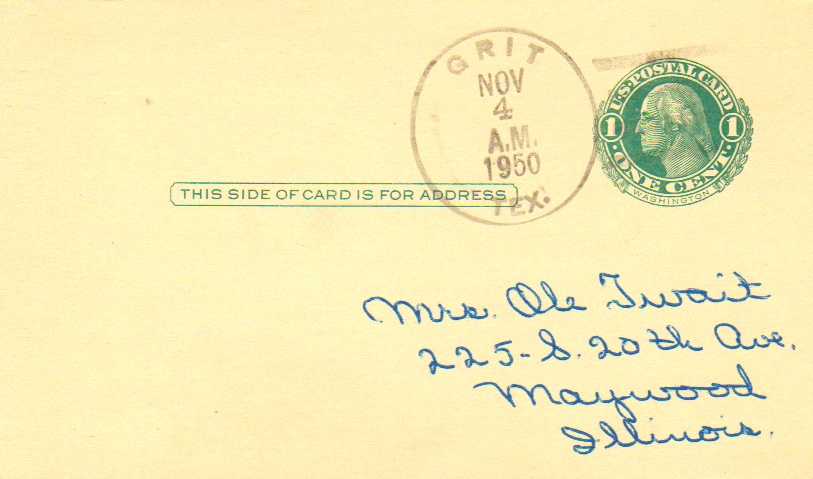 GRIT
NOV
4
A.M.
1950
TEX.
U·S·POSTAL CARD
1 1
·ONE CENT·
WASHINGTON
THIS SIDE OF CARD IS FOR ADDRESS
Mrs. Ole Twait
225-S. 20th Ave.
Maywood
Illinois.